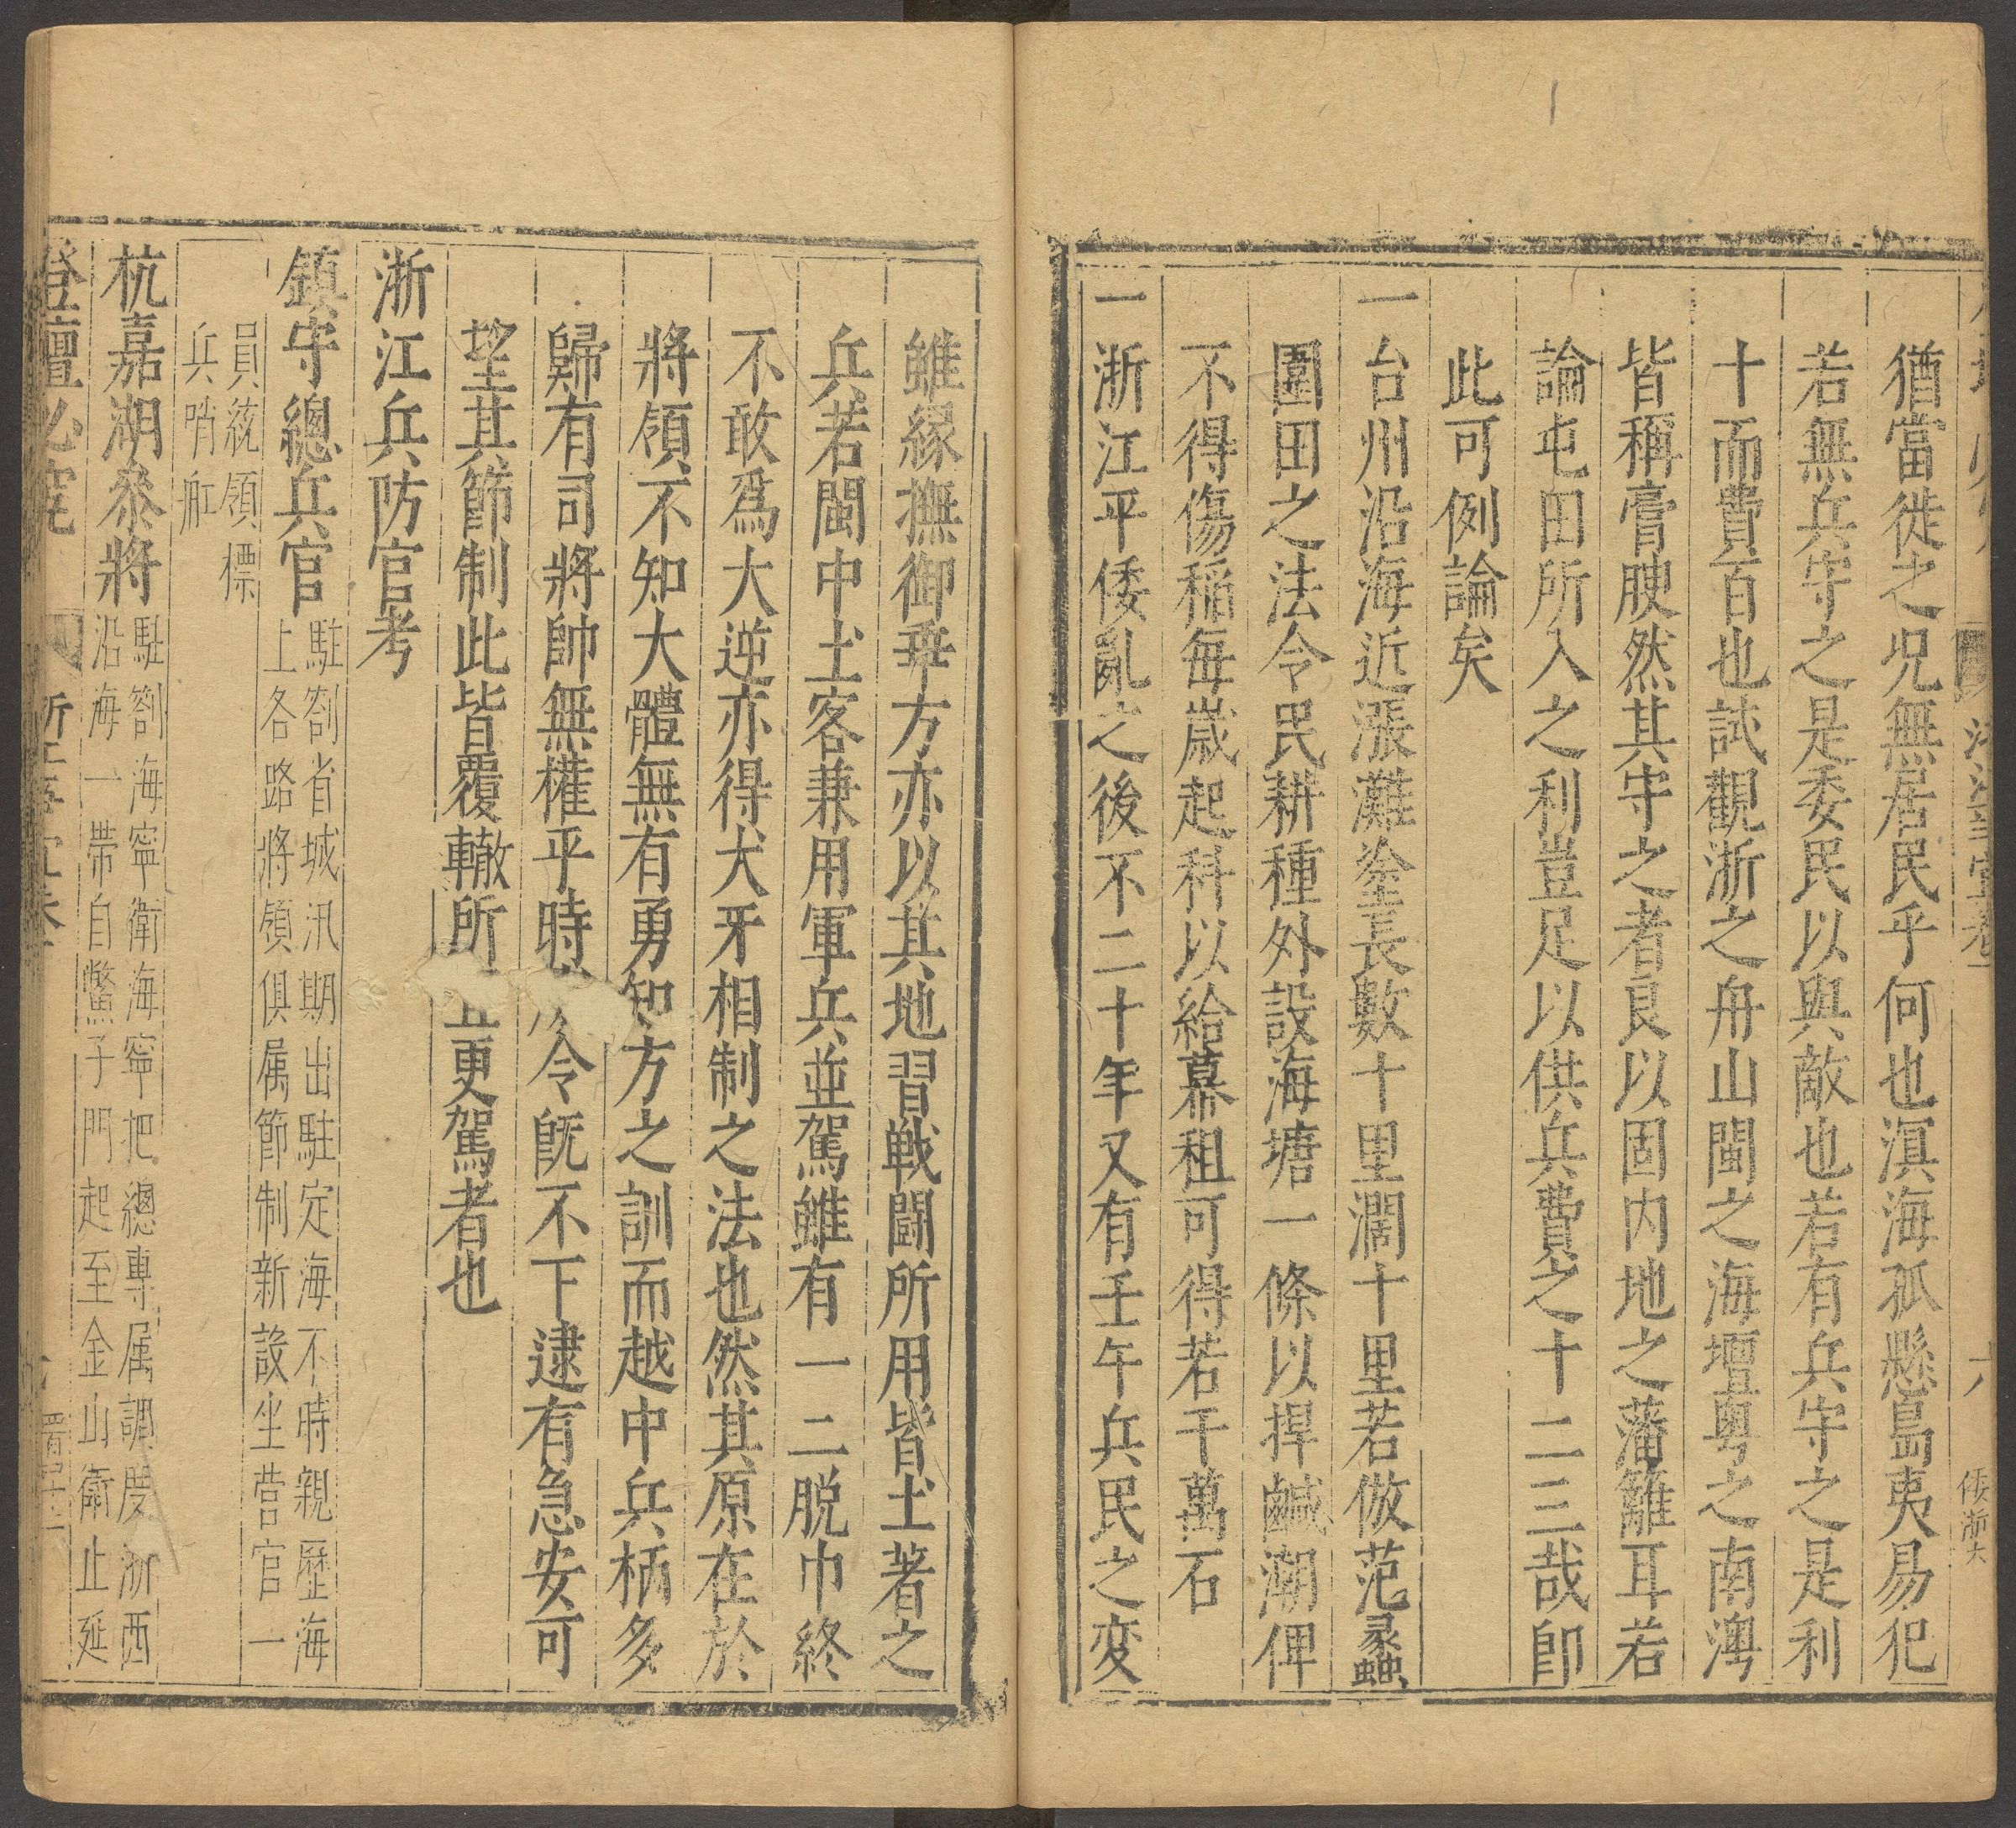 猶當徙之况無居民乎何也溟海孤懸島夷易犯
若無兵守之是委民以與敵也若有兵守之是利
十而費百也試觀浙之舟山閩之海壇粤之南澚
皆稱膏腴然其守之者良以固内地之藩籬耳若
論屯田所入之利豈足以供兵費之十二三哉卽
此可例論矣
一台州沿海近漲灘塗長數十里濶十里若倣范蠡
圍田之法令民耕種外設海塘一條以捍鹹潮俾
不得傷稲每歲起科以給募租可得若干萬石
一浙江平倭亂之後不二十年又有壬午兵民之变
雖緣撫御乖方亦以其地習戦闘所用皆土著之
兵若閩中土客兼用軍兵並駕雖有一二脱巾終
不敢爲大逆亦得犬牙相制之法也然其原在於
將領不知大體無有勇知方之訓而越中兵柄多
歸有司將帥無權平時令旣不下逮有急安可
望其節制此皆覆轍所更駕者也
浙江兵防官考
鎮守總兵官 駐劄省城汛期出駐定海不時親歷海
上各路將領俱属節制新設坐营官一
員統領標
兵哨船
杭嘉湖叅將 駐劄海寧衛海寧把總專属調度浙西
沿海一帶自鱉子門起至金山衛止延
登壇必究